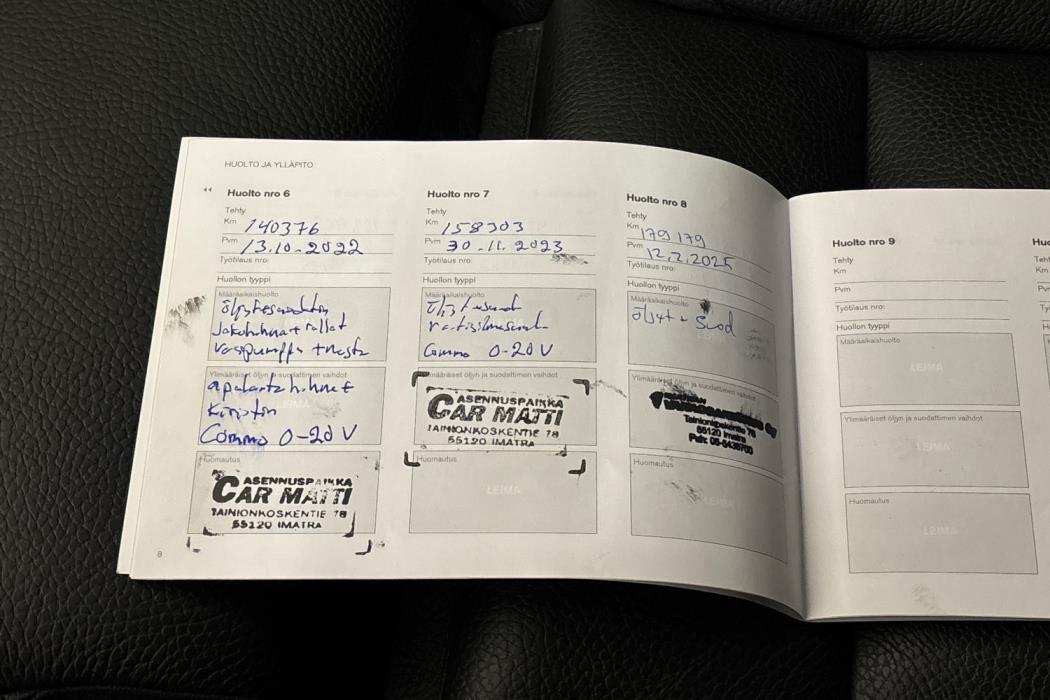 HUOLTO JA YLLÄPITO
Huolto nro 6
Tehty
Km 140376
Pvm 13.10.2022
Työtilaus nro:
Huollon tyyppi
Määräaikaishuolto
Jakohihna + rullat
Ylimääräiset öljyn ja suodattimen vaihdot
kiristin
Commo 0-20 V
Huomautus
ASENNUSPAIKKA
CAR MATTI
TAINIONKOSKENTIE 78
55120 IMATRA
8
Huolto nro 7
Tehty
Km 158303
Pvm 30.11.2023
Työtilaus nro:
Huollon tyyppi
Määräaikaishuolto
Commo 0-20 V
Ylimääräiset öljyn ja suodattimen vaihdot
ASENNUSPAIKKA
CAR MATTI
TAINIONKOSKENTIE 78
55120 IMATRA
Huomautus
LEIMA
Huolto nro 8
Tehty
Km 179 179
Pvm 12.2.2025
Työtilaus nro:
Huollon tyyppi
Määräaikaishuolto
öljyt + suod
Ylimääräiset öljyn ja suodattimen vaihdot
Tainionkoskentie 78
55120 Imatra
Huomautus
LEIMA
Huolto nro 9
Tehty
Km
Pvm
Työtilaus nro:
Huollon tyyppi
Määräaikaishuolto
LEIMA
Ylimääräiset öljyn ja suodattimen vaihdot
LEIMA
Huomautus
LEIMA